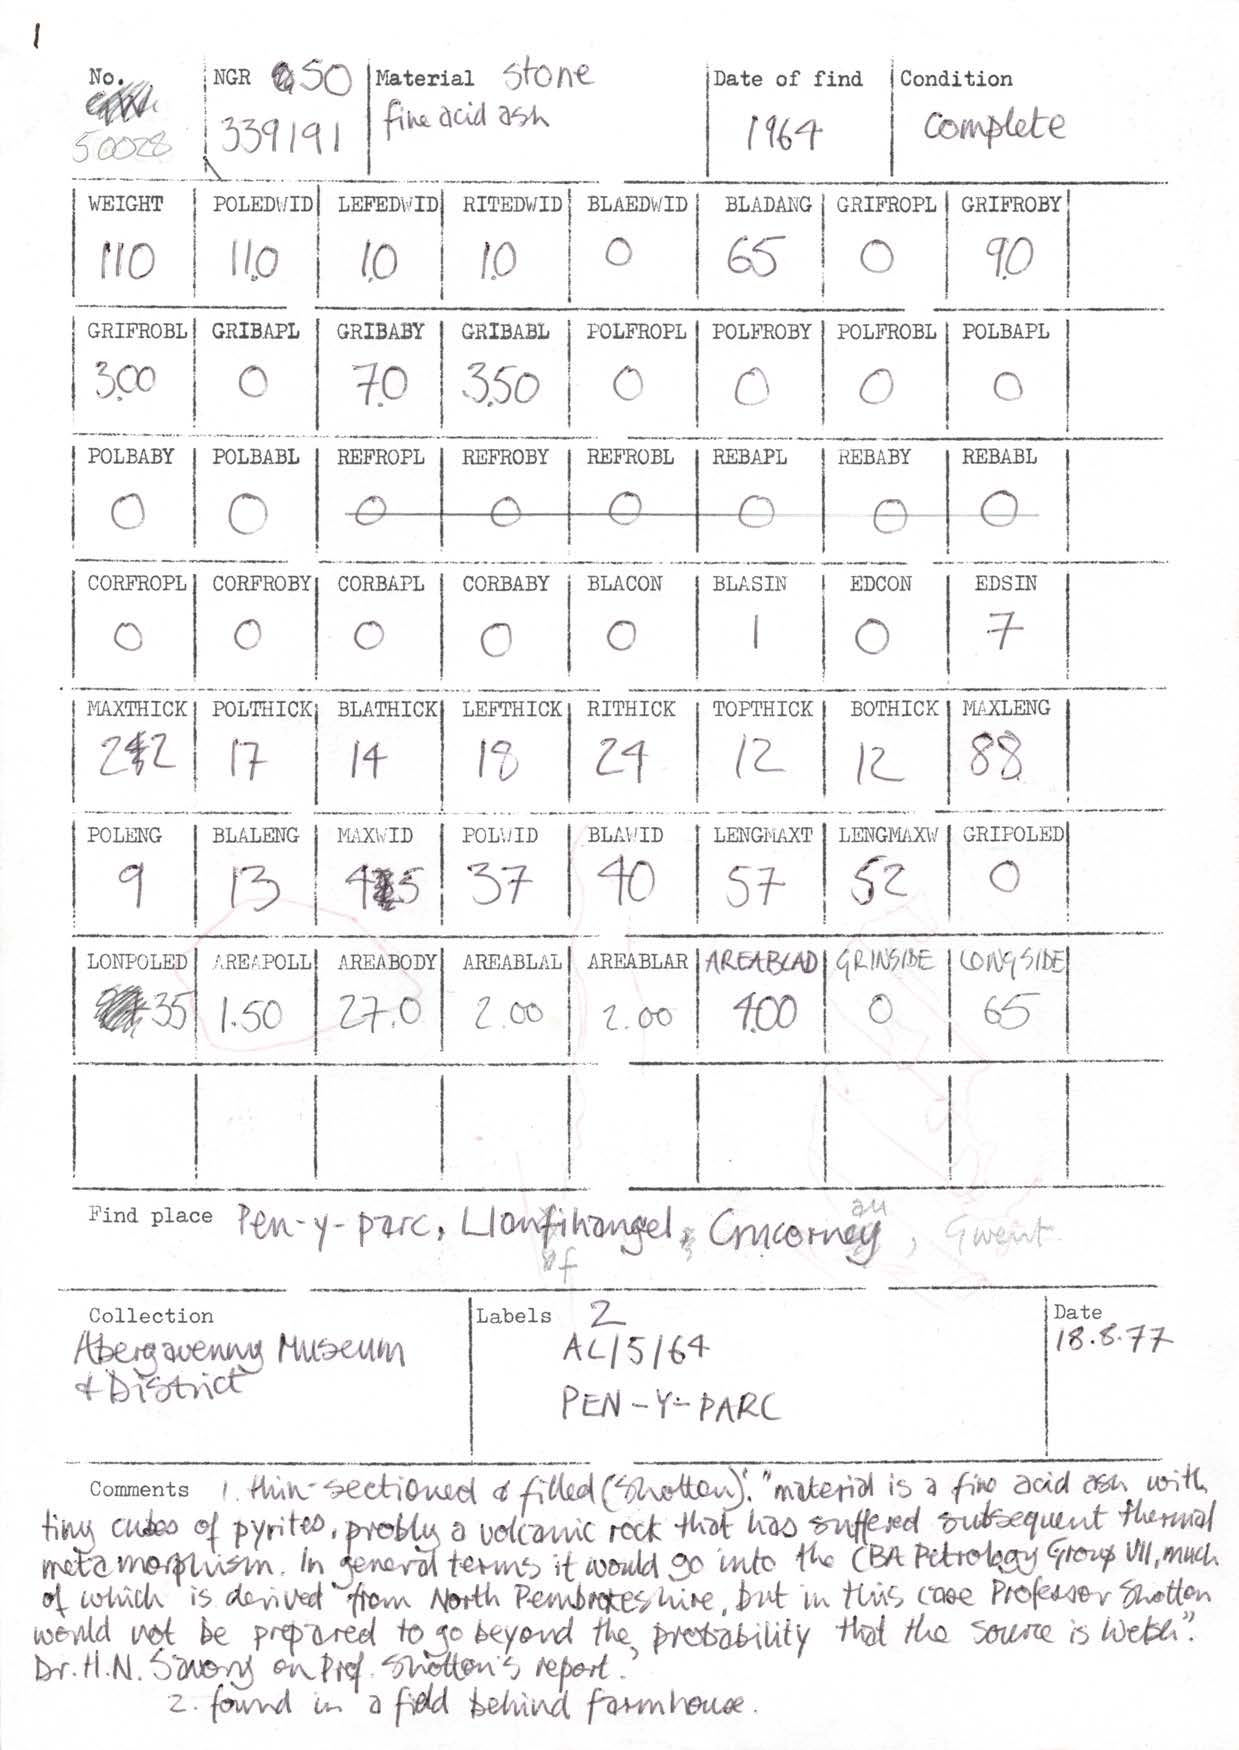 1
No. NGR SO Material stone Date of find Condition
50028 339191 fine acid ash 1964 complete
WEIGHT POLEDWID LEFEDWID RITEDWID BLAEDWID BLADANG GRIFROPL GRIFROBY
110 11.0 1.0 1.0 0 65 0 9.0
GRIFROBL GRIBAPL GRIBABY GRIBABL POLFROPL POLFROBY POLFROBL POLBAPL
3.00 0 7.0 3.50 0 0 0 0
POLBABY POLBABL REFROPL REFROBY REFROBL REBAPL REBABY REBABL
0 0 0 0 0 0 0 0
CORFROPL CORFROBY CORBAPL CORBABY BLACON BLASIN EDCON EDSIN
0 0 0 0 0 1 0 7
MAXTHICK POLTHICK BLATHICK LEFTHICK RITHICK TOPTHICK BOTHICK MAXLENG
22 17 14 18 24 12 12 88
POLENG BLALENG MAXWID POLWID BLAWID LENGMAXT LENGMAXW GRIPOLED
9 13 45 37 40 57 52 0
LONPOLED AREAPOLL AREABODY AREABLAL AREABLAR AREABLAD GRINSIDE LONGSIDE
35 1.50 27.0 2.00 2.00 4.00 0 65
Find place Pen-y-parc, Llanfihangel, Crucorney, Gwent
au
f
Collection Labels 2 Date
Abergavenny Museum AL/5/64 18.8.77
& District PEN-Y-PARC
Comments 1. thin-sectioned & filled (Shotton): "material is a fine acid ash with
tiny cubes of pyrites, probly a volcanic rock that has suffered subsequent thermal
metamorphism. In general terms it would go into the CBA Petrology Group VIII, much
of which is derived from North Pembrokeshire, but in this case Professor Shotton
would not be prepared to go beyond the probability that the source is Welsh".
Dr. H.N. Savory on Prof. Shotton's report.
2. found in a field behind farmhouse.